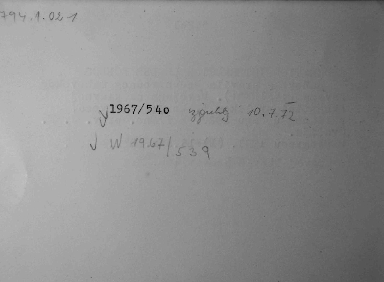 794.1.02-1
1967/540 10.7.72
W 1967/539